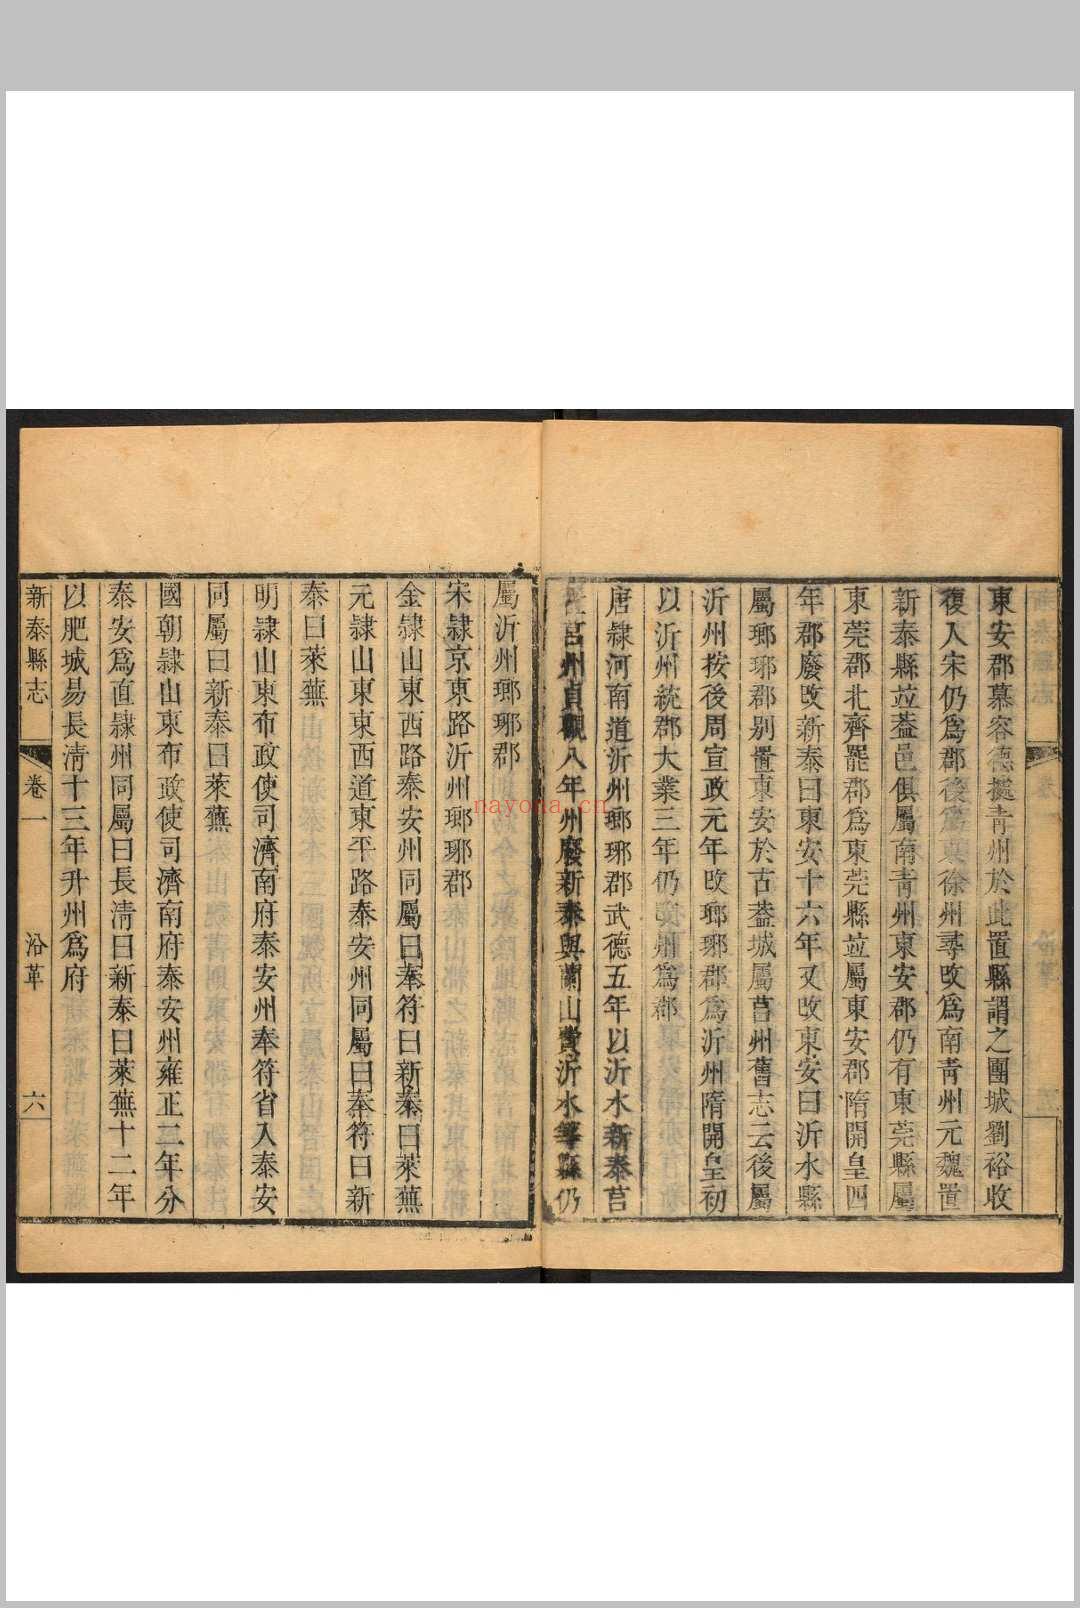 東安郡慕容德㨗青州於此置縣謂之團城劉裕收
復入宋仍爲郡後爲東徐州尋攺爲南青州元魏置
新泰縣竝葢邑俱屬南青州東安郡仍有東莞縣屬
東莞郡北齊罷郡爲東莞縣竝屬東安郡隋開皇四
年郡廢攺新泰曰東安十六年又攺東安曰沂水縣
屬瑯琊郡别置東安於古葢城屬莒州舊志云後屬
沂州按後周宣政元年攺瑯琊郡爲沂州隋開皇初
以沂州統郡大業三年仍爲郡
唐隸河南道沂州瑯琊郡武德五年以沂水新泰莒
莒州貞觀八年州廢新泰與蘭山費沂水等縣仍
屬沂州瑯琊郡
宋隸京東路沂州瑯琊郡
金隸山東西路泰安州同屬曰奉符曰新泰曰萊蕪
元隸山東東西道東平路泰安州同屬曰奉符曰新
泰曰萊蕪
明隸山東布政使司濟南府泰安州奉符省入泰安
同屬曰新泰曰萊蕪
國朝隸山東布政使司濟南府泰安州雍正二年分
泰安爲直隸州同屬曰長清曰新泰曰萊蕪十二年
以肥城易長清十三年升州爲府
新泰縣志 卷一 沿革 六
nayona.cn